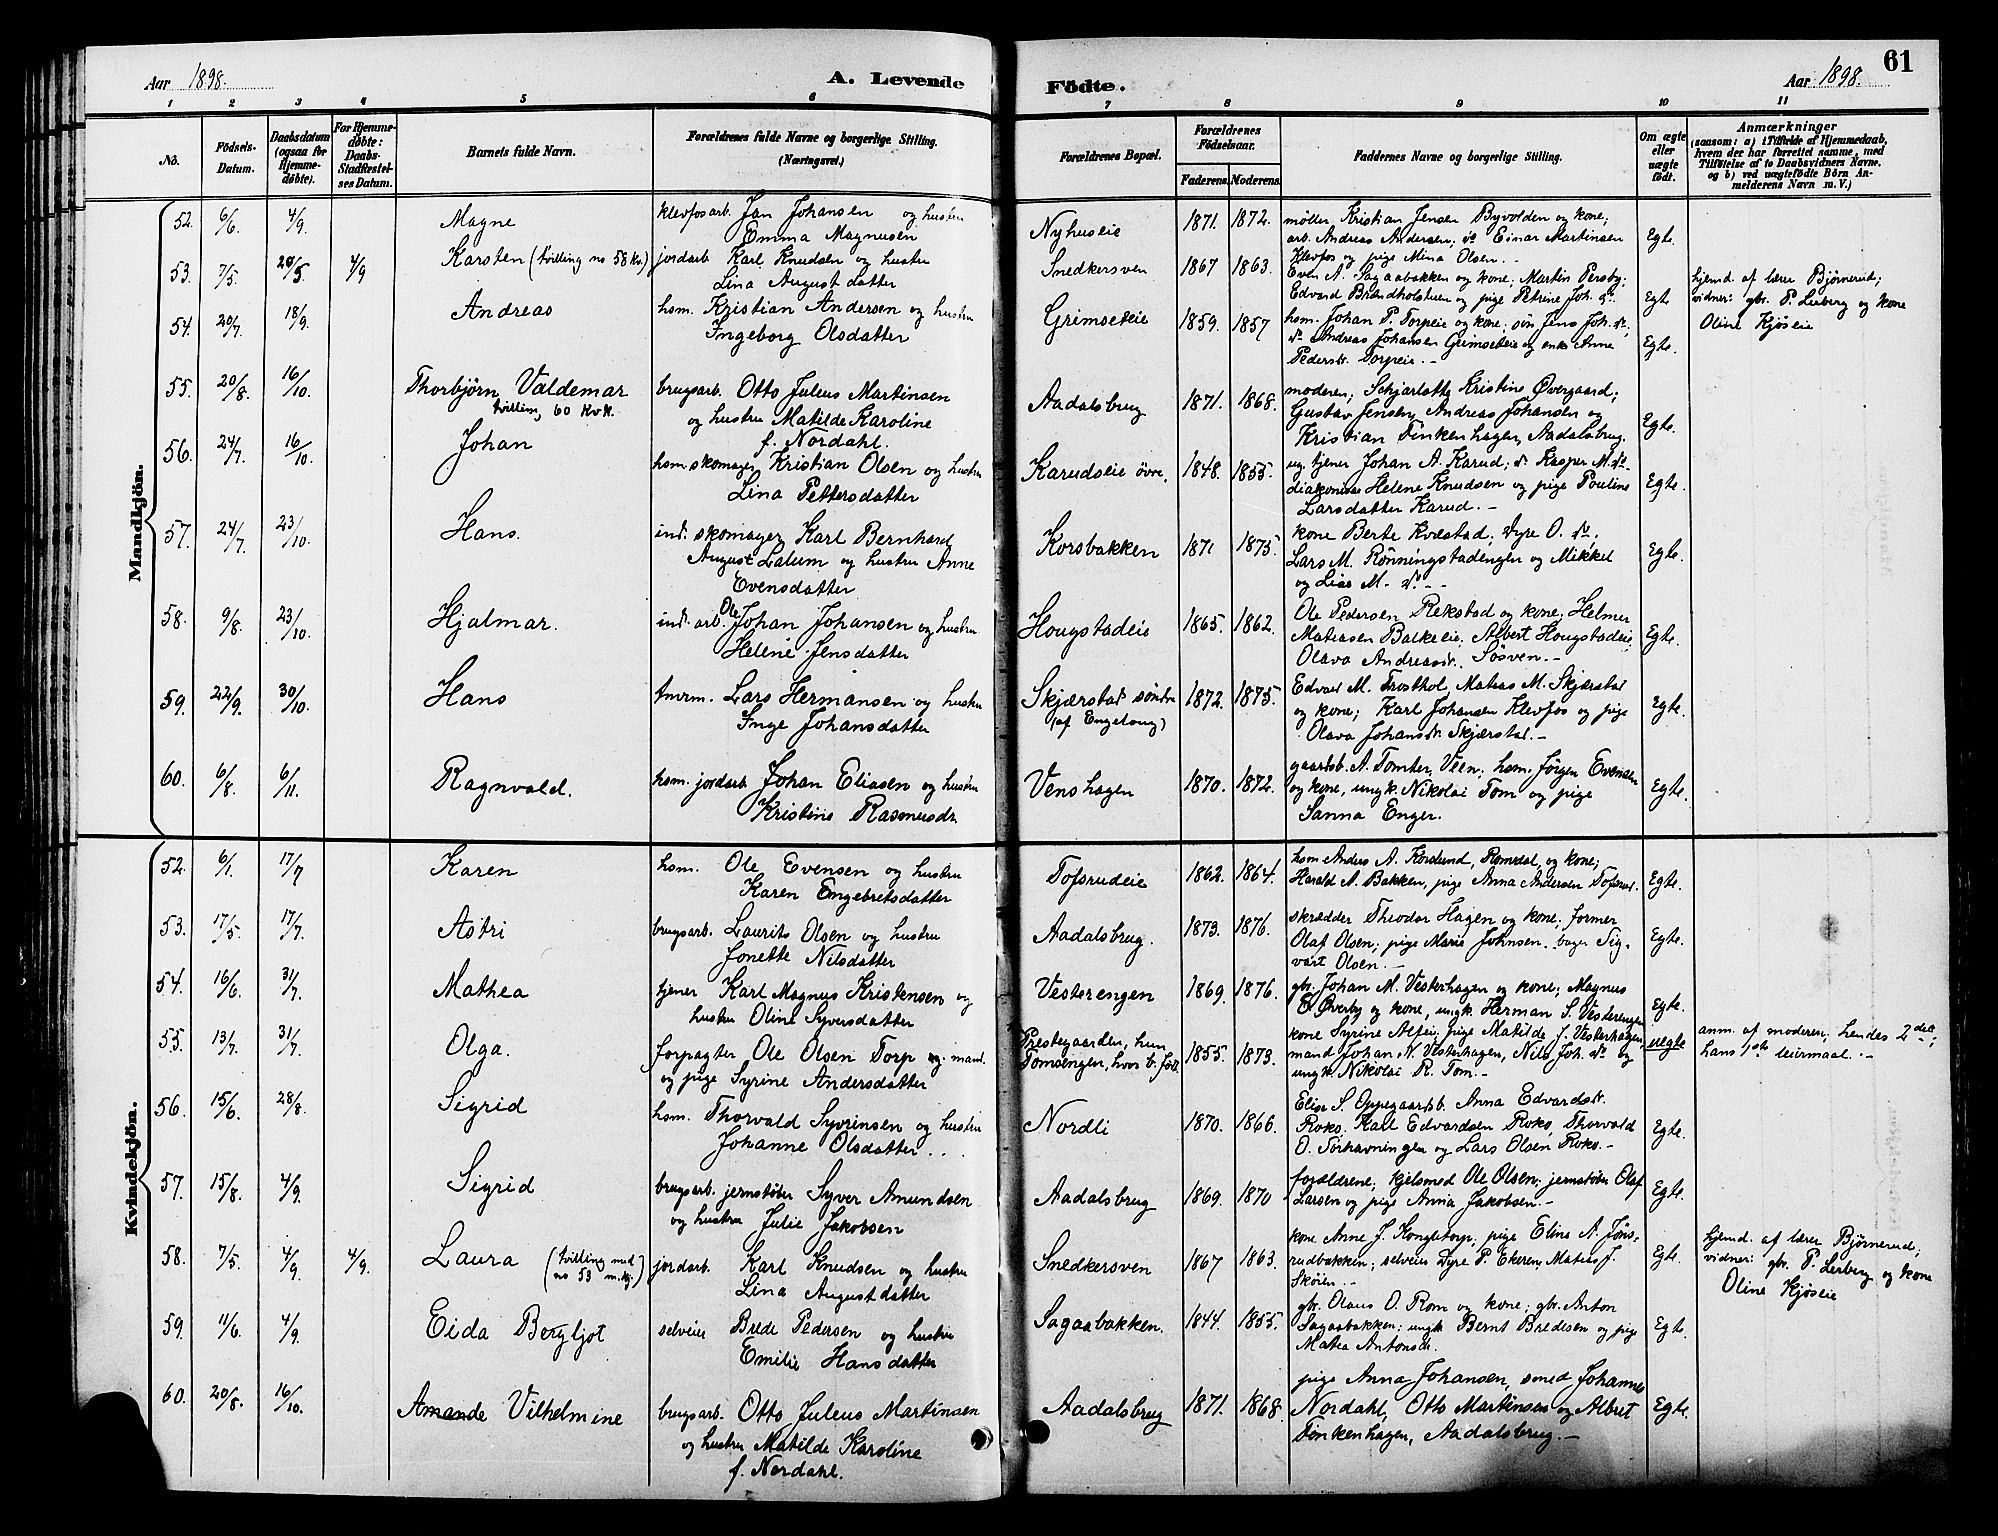 61
Aar 1898.
A. Levende
Födte.
Aar 1898.
1 2 3 4 5 6 7 8 9 10 11
No.
Födsels-Datum.
Daabsdatum (ogsaa for Hjemme-döbte).
For Hjemme-döbte: Daabs-Stadfæstel-ses Datum.
Barnets fulde Navn.
Forældrenes fulde Navne og borgerlige Stilling. (Næringsvei.)
Forældrenes Bopæl.
Forældrenes Födselsaar.
Faderens. Moderens.
Faddernes Navne og borgerlige Stilling.
Om ægte eller uægte født.
Anmærkninger
(saasom: a) i Tilfælde af Hjemmedaab, hvem der har forrettet samme, med Tilföielse af to Daabsvidners Navne, og b) ved uægtefödte Börn An-melderens Navn m. V.)
Mandkjön.
52. 6/6. 4/9. Magne klevfosarb. Jan Johansen og hustru Nyhuseie 1871. 1872. møller Kristian Jensen Byvolden og kone; Egte.
Emma Magnusen arb. Andreas Andersen; do Einar Martinsen
Klevfos og pige Mina Olsen.–
53. 7/5. 20/5 4/9 Karsten (tvilling no 58 Kv.) jordarb. Karl Knudsen og hustru Snedkersven 1867 1863. Even A. Sagaabakken og kone; Martin Persby; Egte hjemd. af lærer Bjørnerud;
Lina Augustdatter Edvard Brændholsteen og pige Petrine Joh. do. vidner: gbr. P. Lerberg og kone
Oline Kjøseie
54. 20/7. 18/9. Andreas hsm. Kristian Andersen og hustru Grimseteie 1859. 1857 hsm. Johan P. Torpeie og kone; søn Jens Joh. do.; Egte.
Ingeborg Olsdatter do Andreas Johansen Grimseteie og enke Anne
Pedersdr. Torpeie.–
55. 20/8. 16/10. Thorbjörn Valdemar brugsarb. Otto Juleus Martinsen Aadalsbrug 1871. 1868. moderen; Schjarlotte Kristine Øvergaard; Egte.
tvilling, 60 Kvk. og hustru Matilde Karoline Gustav Jensen, Andreas Johansen og
f. Nordahl. Kristian Finkenhagen, Aadalsbrug.
56. 24/7. 16/10. Johan hsm. skomager Kristian Olsen og hustru Karudseie övre. 1848. 1855. ug. tjener Johan A. Karud; do Kasper M. do– Egte.
Lina Pettersdatter diakonisse Helene Knudsen og pige Pouline
Larsdatter Karud.–
57. 24/7. 23/10. Hans. ind. skomager Karl Bernhard Korsbakken 1871 1875. kone Berte Kvæstad; Dyre O. do. Egte.
August Lalum og hustru Anne Lars M. Rønningstadengen og Mikkel
Evensdatter og Lise M. do.
58. 9/8. 23/10. Hjalmar. ind. arb. Ole Johan Johansen og hustru Hougstadeie 1865. 1862. Ole Pedersen Rekstad og kone; Helmer Egte.
Helene Jensdatter Matiasen Balkeeie; Albert Hougstadeie;
Olava Andreasdr. Søsven.–
59. 22/9. 30/10. Hans tmrm. Lars Hermansen og hustru Skjærstad søndre 1872. 1875. Edvard M. Trosthol, Matias M. Skjærstad Egte.
Inge Johansdatter (af Engelaug) og kone; Karl Johansen Klevfos og pige
Olava Johansdr. Skjærstad.–
60. 6/8. 6/11. Ragnvald. hsm. jordarb. Johan Eliasen og hustru Venshagen 1870. 1872. gaardsb. A. Tomter, Veen; hsm. Jørgen Evensen Egte.
Kristine Rasmusdr. og kone, ungk. Nikolai Tom og pige
Sanna Enger.
Kvindekjön.
52. 6/1. 17/7 Karen hsm. Ole Evensen og hustru Tofsrudeie 1862. 1864. hsm Anders A. Korslund, Romdal, og kone; Egte.
Karen Engebretsdatter Harald A. Bakken, pige Anna Andersen Tofsrud.
53. 17/5. 17/7. Astri brugsarb. Laurits Olsen og hustru Aadalsbrug. 1873. 1876. skrædder Theodor Hagen og kone; former Egte.
Jonette Nilsdatter Olaf Olsen; pige Marie Johnsen, bager Sig-
vart Olsen.–
54. 16/6. 31/7. Mathea tjener Karl Magnus Kristensen og Vesterengen 1869. 1876. gbr. Johan M. Vesterhagen og kone; Magnus Egte.
hustru Oline Syversdatter E. Øverby og kone, ungk. Herman S. Vesterengen
55. 13/7. 31/7. Olga. forpagter Ole Olsen Torp og mand. Prestegaarden, hun 1855. 1873. kone Syrine Alfeie, pige Matilde J. Vesterhagen, uegte anm. af moderen; hendes 2det;
og pige Syrine Andersdatter Tomsengen, hvor b. föd. mand Johan N. Vesterhagen, Nils Joh. do og hans 1ste leiermaal.–
ungk. Nikolai R. Tom.–
56. 15/6. 28/8. Sigrid hsm. Thorvald Syvrinsen og hustru Nordli 1870. 1866. Elise S. Oppegaardsb. Anna Edvardsdr. Egte.
Johanne Olsdatter Roko. Karl Edvardsen Roko, Thorvald
O. Torhavningen og Lars Olsen Roko.–
57. 15/8. 4/9. Sigrid brugsarb. jernstøber Syver Amundsen Aadalsbrug 1869. 1870 forældrene; kjelsmed Ole Olsen; jernstøber Olaf Egte.
og hustru Julie Jakobsen Larsen og pige Anna Jakobsen.–
58. 7/5. 4/9. 4/9. Laura (tvilling med no 53 m.kj.) jordarb. Karl Knudsen og hustru Snedkersven 1867 1863. kone Anne J. Kongletorp; pige Eline A. Jøns- Egte. hjemd. af lærer Bjørnerud;
Lina Augustdatter rudbakken; selveier Dyre P. Ekeren, Matias J. vidner: gbr. P. Lerberg og kone
Skøien. Oline Kjøseie
59. 11/6. 4/9. Eida Bergljot selveier Brede Pedersen og hustru Sagaabakken. 1844. 1855. gbr. Olaus O. Rom og kone; gbr. Anton Egte.
Emilie Hansdatter Sagaabakken; ungk. Bernt Bredesen og pige
Matea Antonsdr.
60. 20/8. 16/10. Amande Vilhelmine brugsarb. Otto Juleus Martinsen Aadalsbrug 1871. 1868. pige Anna Johansen, smed Johannes Egte.
og hustru Matilde Karoline Nordahl, Otto Martinsen og Albret
f. Nordahl. Finkenhagen, Aadalsbrug.–